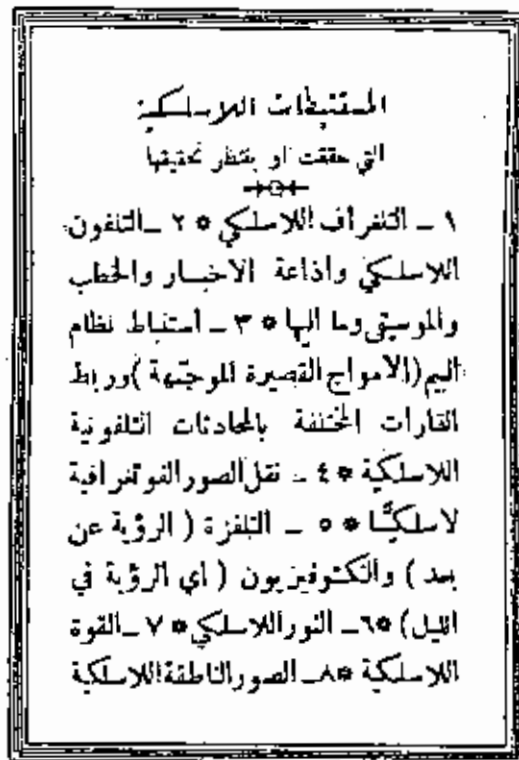 المستنبطات اللاسلكية
التي حققت او ينتظر تحقيقها
١ ـ التلغراف اللاسلكي * ٢ ـ التلفون
اللاسلكي واذاعة الاخبار والخطب
والموسيقى وما اليها * ٣ ـ استنباط نظام
البيم (الامواج القصيرة الموجّهة) وربط
القارات المختلفة بالمحادثات التلفونية
اللاسلكية * ٤ ـ نقل الصور الفوتغرافية
لاسلكيًّا * ٥ ـ التلفزة ( الرؤية عن
بعد ) والنكتوفيزيون ( اي الرؤية في
الليل) * ٦ ـ النور اللاسلكي * ٧ ـ القوة
اللاسلكية * ٨ ـ الصور الناطقة اللاسلكية